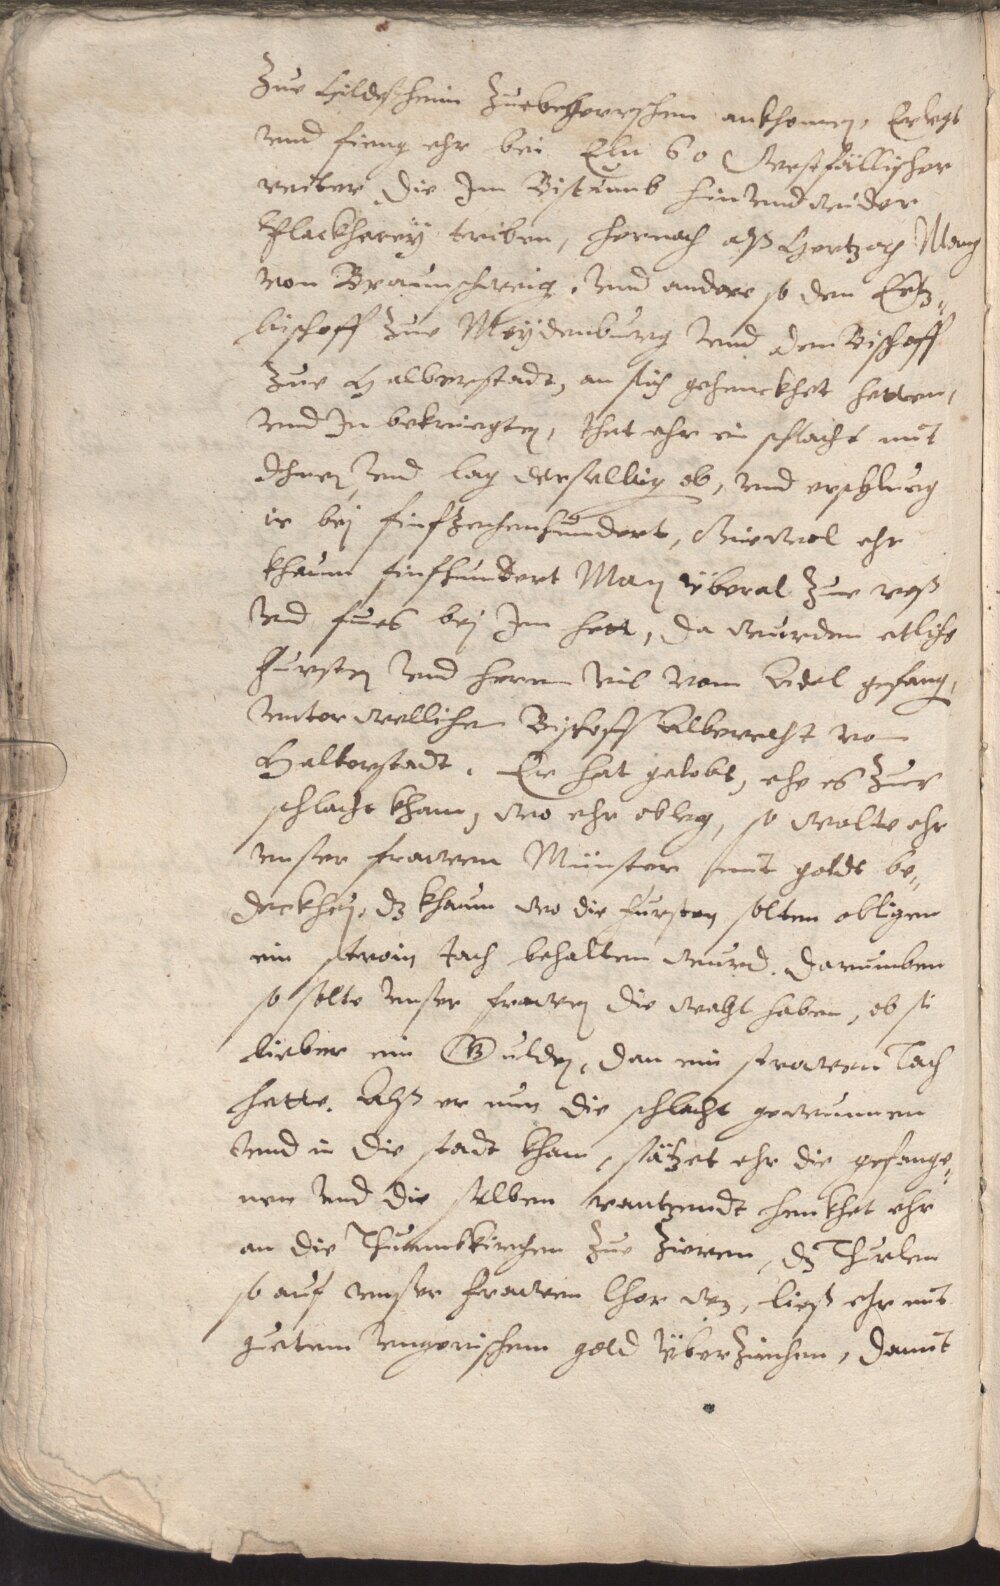 Zue Hildesheim Zuebeherrschen ankhomen, Erlegt
vnd fieng ehr bei Eln 60 Westfällischer
reiter die Jm Bistumb hin vnd wider
Plackherey triben, hernach alß Hertzog Mang
von Braunschweig, vnd andere so den Ertz„
bischoff zue Meydenburg vnd dem Bischoff
Zue Halberstadt, an sich gehenckhet hetten,
vnd Jn bekriegten, that ehr ein schlacht mit
Jhnen, vnd lag derselbig ob, vnd erschlueg
ir bej finfzechenhundert, Wiewol ehr
khaum finfhundert Man überal zue roß
vnd fues bej Jm hett, da wurden etliche
Fursten vnd herrn vil vom Adel gefang,
vnter wellichen Bischoff Albrecht von
Halberstadt. Er hat gelobt, ehe es zur
schlacht kham, wo ehr obleg, so wolte ehr
vnser frawen Münster mit goldt be„
deckhen, dz khaum wo die fursten solten obligen
ein stroin tach behalten wurd. Darumben
so solte vnser frawen die wahl haben, ob si
lieber ein Gulden, dan ein strowen Tach
hette. Alß er nun die schlacht gewunnen
vnd in die stadt kham, schätzet ehr die gefange„
nen vnd die selben rantzendt henkhet ehr
an die Thuembkirchen zue zieren, dz Thurlen
so auf vnser frawen Chor wz, ließ ehr mit
guetem vngerischem gold überziechen, damit